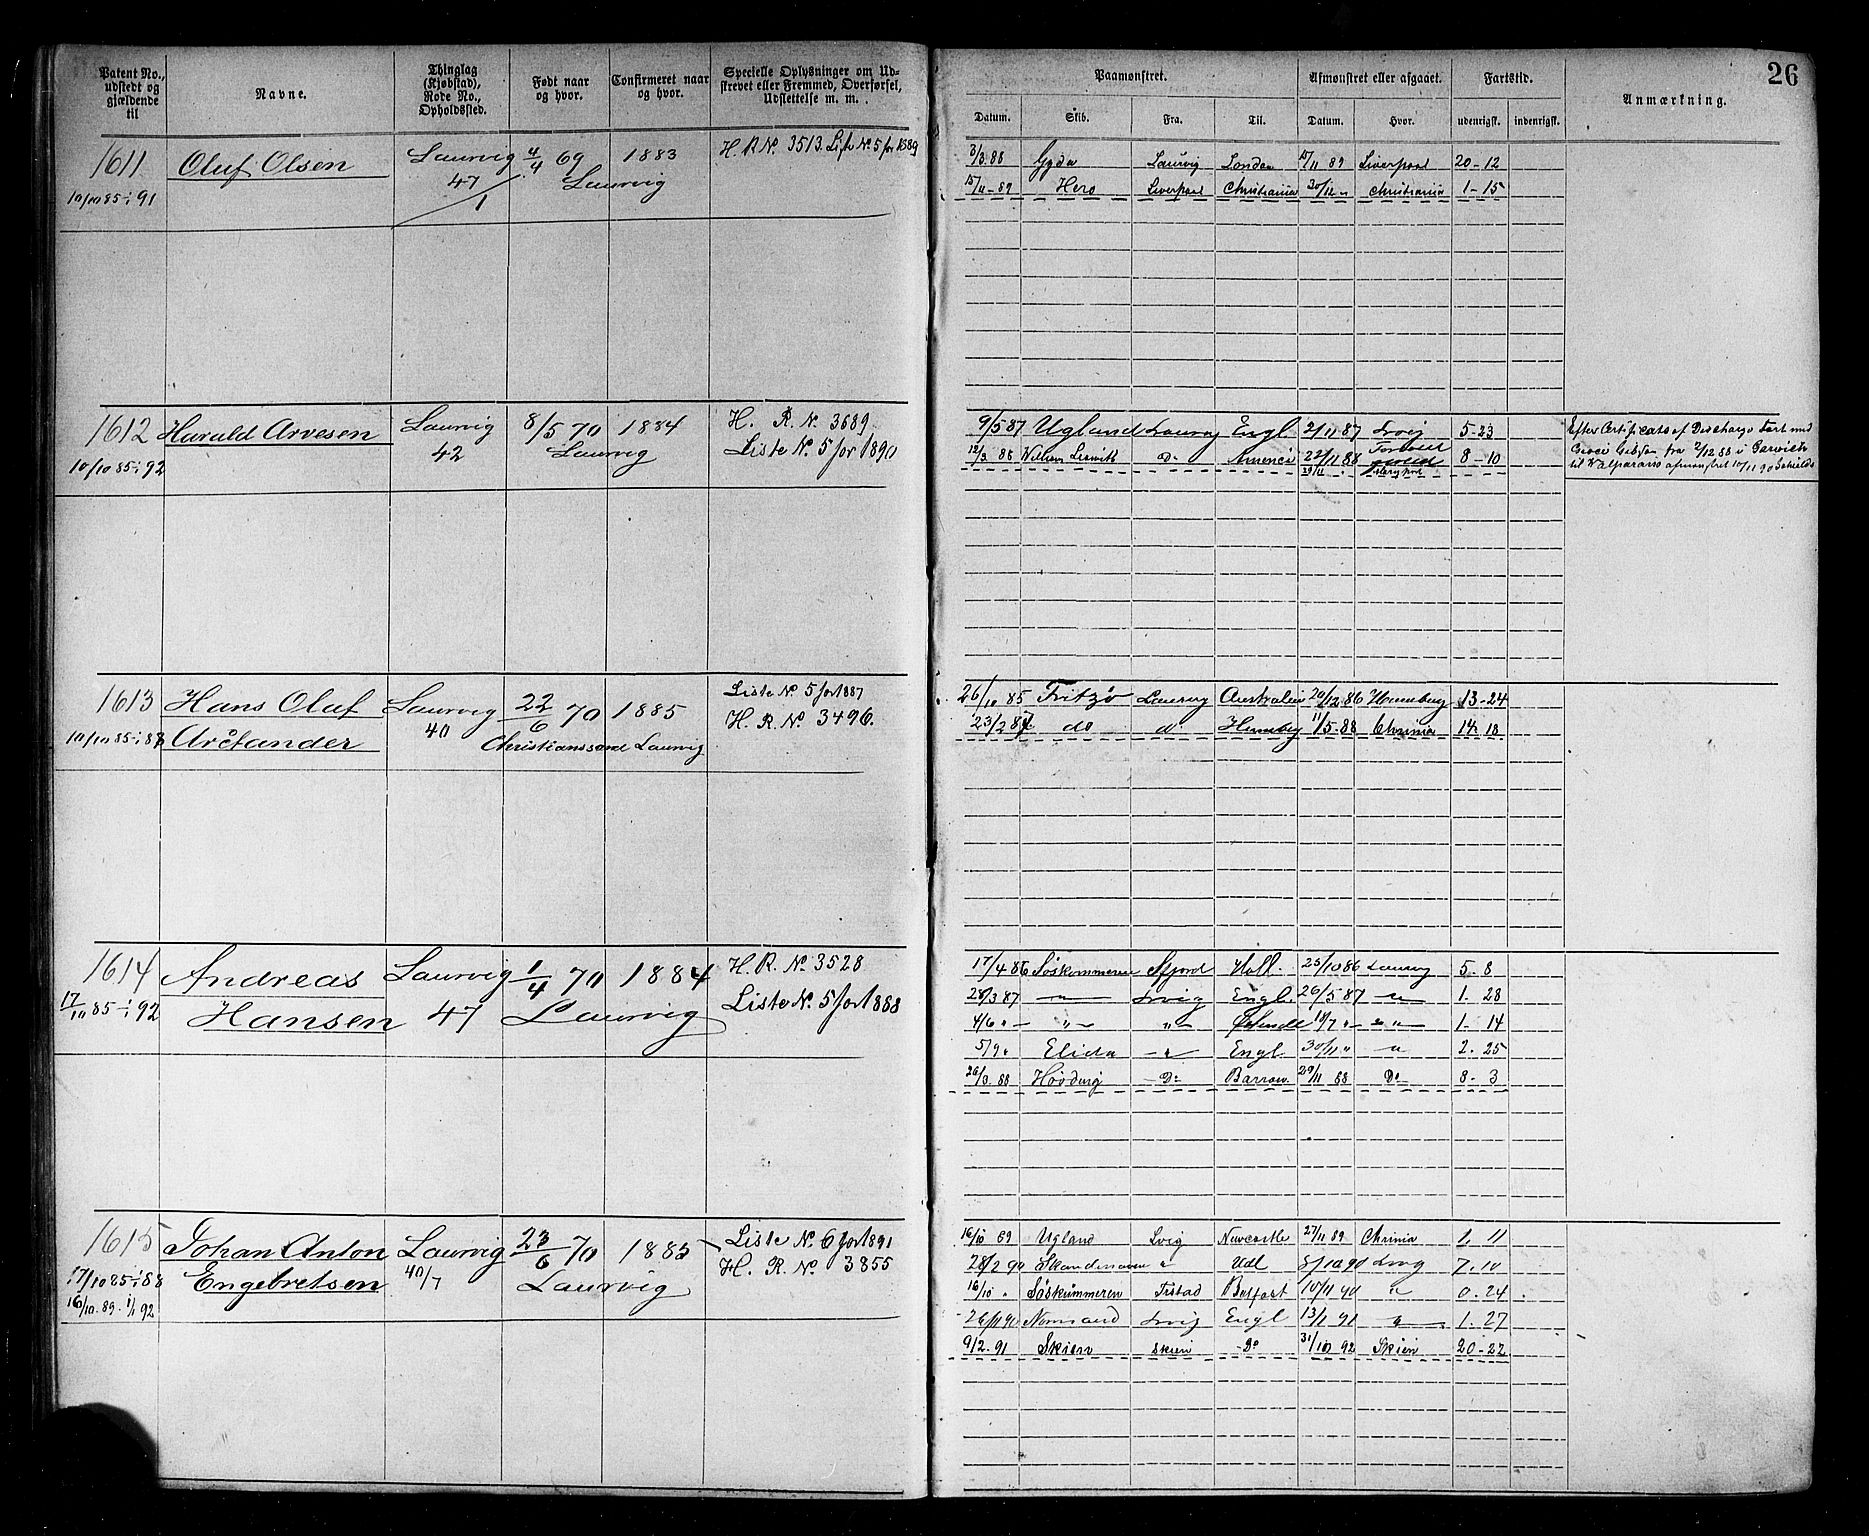 Patent No., udstedt og gjældende til
Navne.
Thinglag (Kjøbstad), Rode No., Opholdssted.
Født naar og hvor.
Confirmeret naar og hvor.
Specielle Oplysninger om Udskrevet eller Fremmed, Overførsel, Udslettelse m. m.
Paamønstret.
Afmønstret eller afgaaet.
Fartstid.
Anmærkning.
26
Datum. Skib. Fra. Til. Datum. Hvor. udenrigsk. indenrigsk.
1611 Oluf Olsen Laurvig 4/4 69 1883 H. R No. 3513. Liste No. 5 for 1889
10/10 85 - 1/1 91 47/1 Laurvig
3/3. 88 Gyda Laurvig London 15/11 89 Liverpool 20 - 12
15/11 - 89 Hero Liverpool Christiania 30/12 " Christiania 1 - 15
1612 Harald Arvesen Laurvig 8/5 70 1884 H. R. No. 3689.
10/10 85 - 1/1 92 42 Laurvig Liste No. 5 for 1890
9/5 87 Ugland Laurvig Engl 2/11 87 Lrvig 5 - 23
12/3. 88 William Do 22/11 88 8 - 10
29/11
Efter Certificate of Discharge Fart med
Grace Gibson fra 7/12 88 i
til Valparaiso afmønstret 10/11 90 Schields
1613 Hans Oluf Laurvig 22/6 70 1885 Liste No. 5 for 1887
10/10 85 - 1/1 88 Arctander 40 Christianssand Laurvig H. R. No 3496.
26/10 85 Fritzö Laurvig Australien 20/12 86 Hamburg 13 - 24
23/2 87 do do Hamburg 11/5 - 88 Chrania 14 - 18
1614 Andreas Laurvig 1/4 70 1884 H. R. No. 3528
17/10 85 - 1/1 92 Hansen 47 Laurvig Liste No. 5 for 1888
17/4 86 Søskommeren Sfjord Holl. 25/10 86 Laurvig 5. 8
28/3 87 — " — Lrvig Engl. 26/5 87 — " — 1. 28
4/6 " — — " — " 18/7 " — " — 1. 14
5/9 " Elida — " — Engl 30/11 " — " 2. 25
26/3. 88 Do Barrow. 29/11 88 Do 8. 3
1615 Johan Anton Laurvig 23/6 70 1885 Liste No. 6 for 1891
17/10 85 - 1/1 88 Engebretsen 40/7 Laurvig H. R. No 3855
16/10. 89 - 1/1 92
16/10 89 Ugland Lvig Newcastle 27/11 89 Chrania 1. 11
28/2 90 Skandinaven " Udl 8/10 90 Lrvig 7. 10
16/10 " Søskummeren Frstad Belfast 10/11 90 " 0. 24
26/11 90 Nornsand Lrvig Engl 13/1 91 — " — 1. 27
9/2. 91 Skien Skien Do 31/10 92 Skien 20 - 22